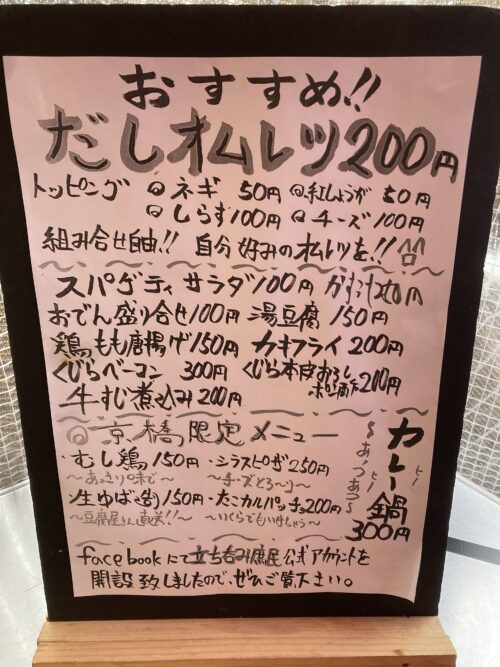 おすすめ!!
だしオムレツ200円
トッピング ◎ネギ 50円 ◎紅しょうが 50円
◎しらす100円 ◎チーズ 100円
組み合せ自由!! 自分好みのオムレツを!!
スパゲティサラダ100円 かす汁200円
おでん盛り合せ100円 湯豆腐 150円
鶏もも唐揚げ150円 カキフライ 200円
くじらベーコン 300円 くじら本皮おろしポン酢200円
牛すじ煮込み200円
◎京橋限定メニュー
・むし鶏150円 ・シラスピザ250円
〜あっさり味で〜 〜チーズとろ〜り〜
・生ゆば 150円 ・たこカルパッチョ200円
〜豆腐屋さん直送!!〜 〜いくらでもいけちゃう〜
カレー鍋
〜あつあつ〜
ヒー ヒー
300円
facebookにて立ち呑み庶民公式アカウントを
開設致しましたので、ぜひご覧下さい。